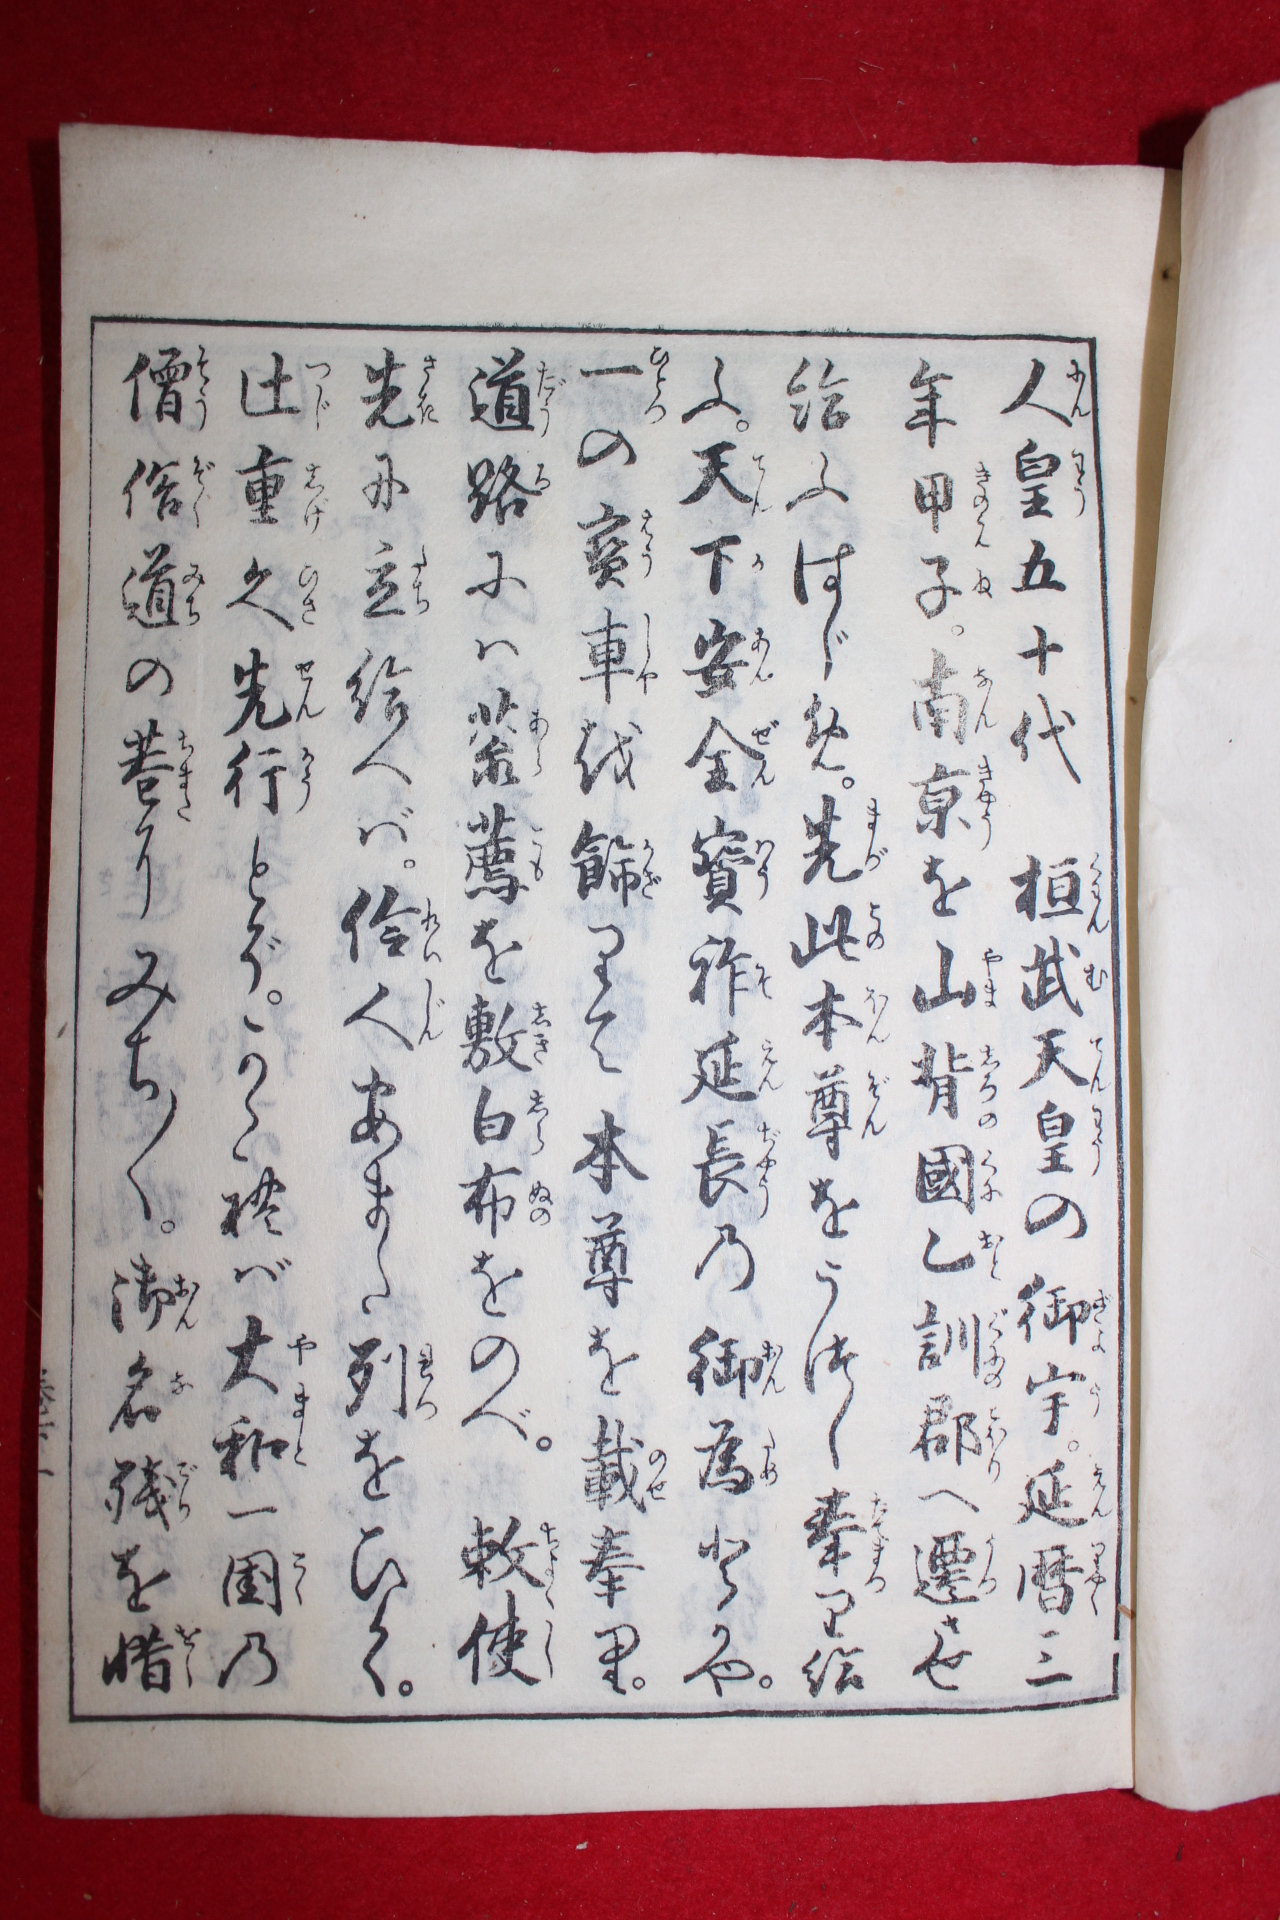 人皇五十代　桓武天皇の御宇。延暦三
年甲子。南京を山背國乙訓郡へ遷させ
給ふはじめ。先此本尊をうつし奉り給
ふ。天下安全寳祚延長乃御為とかや。
一の寳車を餝りて本尊を載奉り。
道路には荒薦を敷白布をのべ。勅使
先に立給へば。伶人あまた列をひく。
辻重久先行とぞ。かゝれば大和一国乃
僧俗道の巷りみち〳〵。御名残を惜